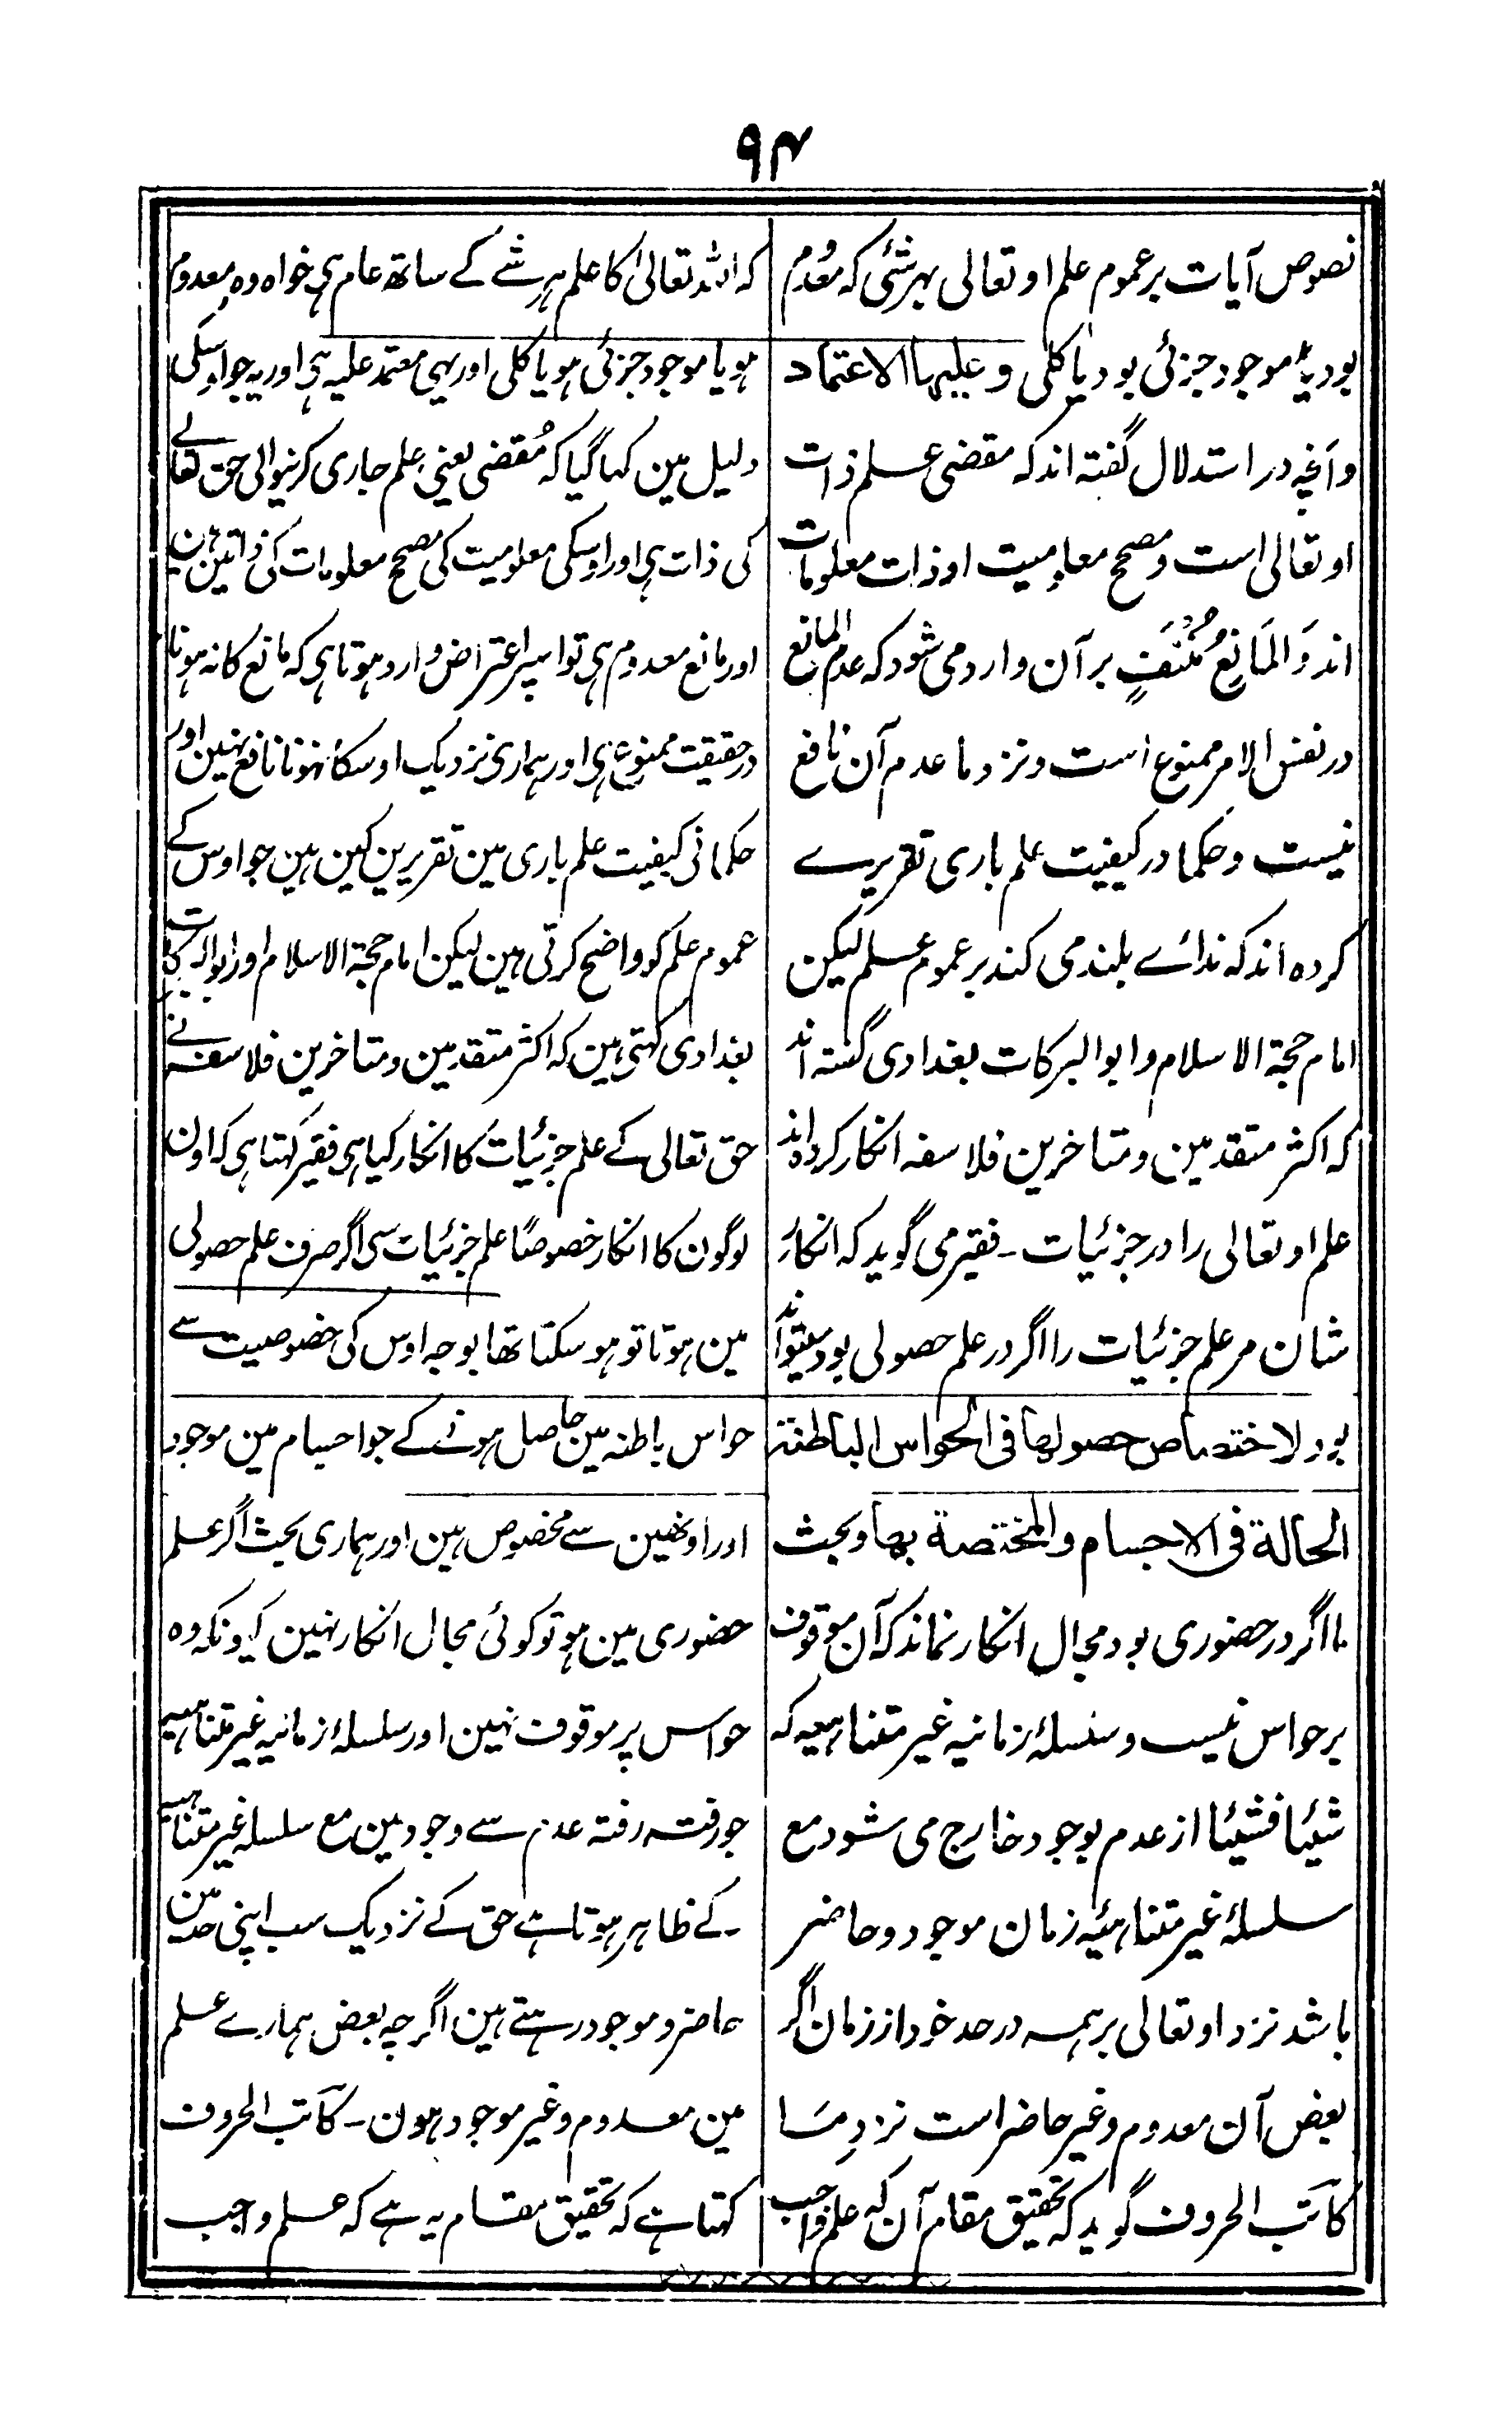 ۹۴
نصوص آیات بر عموم علم او تعالی بہر شئی کہ معدوم
بود یا موجود جزئی بود یا کلی و علیہا الاعتماد
و آنچہ در استدلال گفتہ اند کہ مقضی علم ذات
او تعالی است و مصحح معلومیت او ذات معلومات
اند وَالمَانِعُ مُنْتَفٍ بر آن وارد می شود کہ عدم المانع
در نفس الامر ممنوع است و نزد ما عدم آن نافع
نیست و حکما در کیفیت علم باری تقریرے
کردہ اند کہ ندائے بلند می کند بر عموم علم لیکن
امام حجۃ الاسلام و ابو البرکات بغدادی گفتہ اند
کہ اکثر متقدمین و متاخرین فلاسفہ انکار کردہ اند
علم او تعالی را در جزئیات ۔ فقیر می گوید کہ انکار
شان مر علم جزئیات را اگر در علم حصولی بود میتواند
بود لاختصاص حصولها فی الحواس الباطنة
الحالة فی الاجسام والمختصة بها و بحث
ما اگر در حضوری بود مجال انکار نماند کہ آن موقوف
بر حواس نیست و سلسلۂ زمانیہ غیر متناہیہ کہ
شیئا فشیئا از عدم بوجود خارج می شود مع
سلسلۂ غیر متناہیۂ زمان موجود و حاضر
باشد نزد او تعالی بر ہمہ در حد خود از زمان اگر
بعض آن معدوم و غیر حاضر است نزدِ مَا
کاتب الحروف گوید کہ تحقیق مقام آن کہ علم واجب
کہ اللہ تعالیٰ کا علم ہر شے کے ساتھ عام ہی خواہ وہ معدوم
ہو یا موجود جزئی ہو یا کلی اور یہی معتمد علیہ ہی اور یہ جو اوسکی
دلیل مین کہا گیا کہ مُقضی یعنی علم جاری کرنیوالی حق تعالے
کی ذات ہی اور اوسکی معلومیت کی مصحح معلومات کی ذاتین ہین
اور مانع معدوم ہی تو اسپر اعتراض وارد ہوتا ہی کہ مانع کا نہ ہونا
در حقیقت ممنوع ہی اور ہماری نزدیک اوسکا نہونا نافع نہین اور
حکمانی کیفیت علم باری مین تقریرین کین ہین جو اوس کے
عموم علم کو واضح کرتی ہین لیکن امام حجۃ الاسلام اور ابو البرکات
بغدادی کہتی ہین کہ اکثر متقدمین و متاخرین فلاسفہ نے
حق تعالی کے علم جزئیات کا انکار کیا ہی فقیر کہتا ہی کہ اون
لوگون کا انکار خصوصًا علم جزئیات سی اگر صرف علم حصولی
مین ہوتا تو ہو سکتا تھا بوجہ اوس کی خصوصیت سے
حواس باطنہ مین حاصل ہونے کے جو اجسام مین موجود
اور اونھین سے مخصوص ہین اور ہماری بحث اگر علم
حضوری مین ہو تو کوئی مجال انکار نہین کیونکہ وہ
حواس پر موقوف نہین اور سلسلۂ زمانیہ غیر متناہیہ
جو رفتہ رفتہ عدم سے وجود مین مع سلسلہ غیر متناہیہ
کے ظاہر ہوتا ہے حق کے نزدیک سب اپنی حد مین
حاضر و موجود رہتے ہین اگرچہ بعض ہمارے علم
مین معدوم و غیر موجود ہون ۔ کاتب الحروف
کہتا ہے کہ تحقیق مقام یہ ہے کہ علم واجب